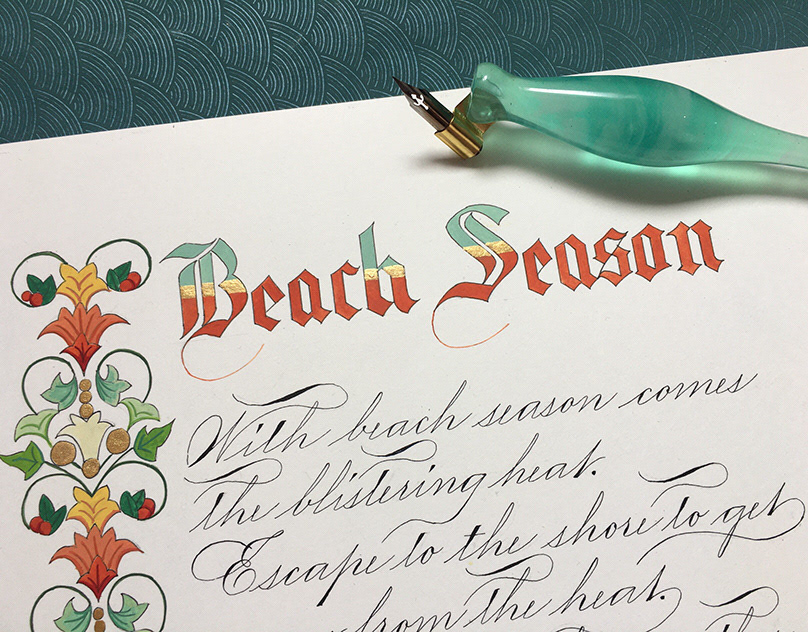 Beach Season
With beach season comes
the blistering heat.
Escape to the shore to get
from the heat.